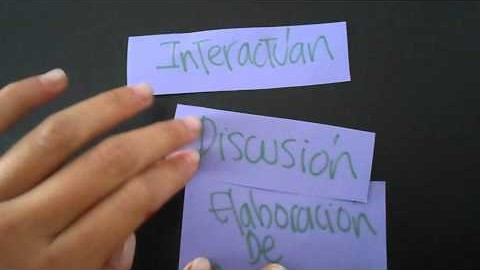 Interactúan
Discusión
Elaboración
De